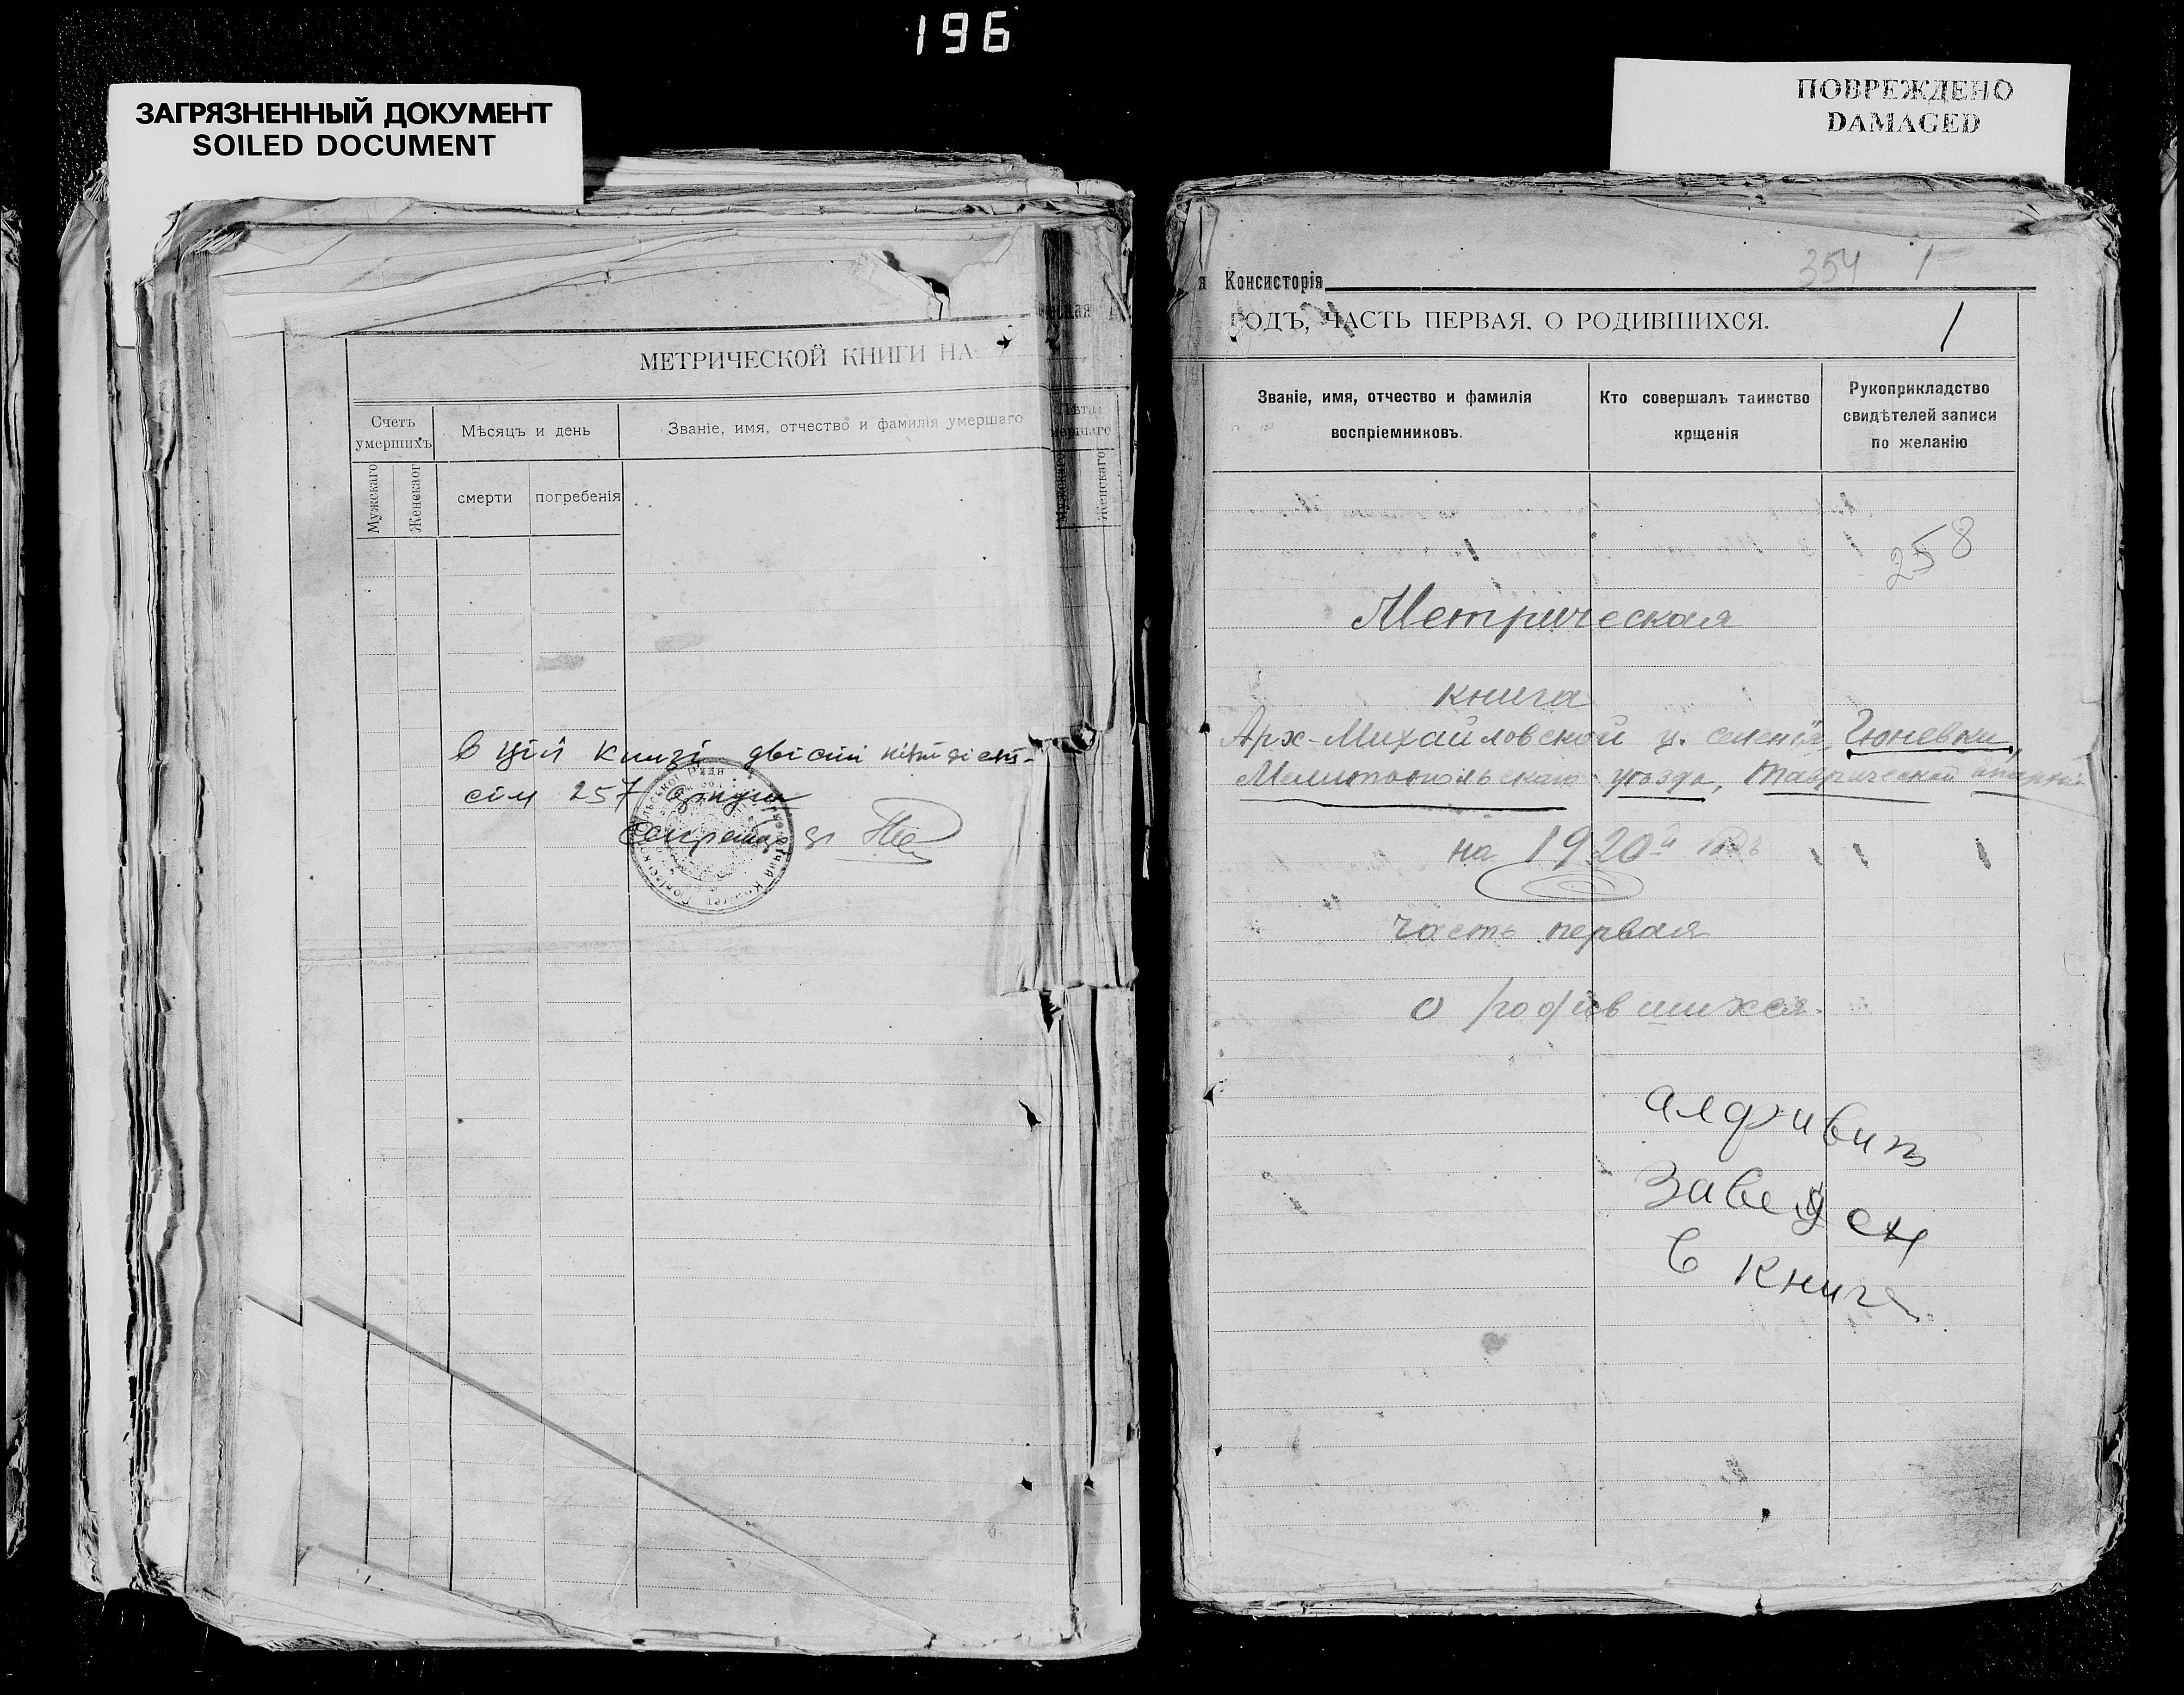 196
ЗАГРЯЗНЕННЫЙ ДОКУМЕНТ
SOILED DOCUMENT
МЕТРИЧЕСКОЙ КНИГИ НА
Счетъ умершихъ
Мѣсяцъ и день
Званіе, имя, отчество и фамилія умершаго
Мужскаго
Женскаог
смерти
погребенія
Мужскаго
Женскаго
В цій книзі двісті пятдесят
сім 257
Секретар
ПОВРЕЖДЕНО
DAMAGED
354 1
я Консисторія
ГОДЪ, ЧАСТЬ ПЕРВАЯ. О РОДИВШИХСЯ.
1
Званіе, имя, отчество и фамилія
воспріемниковъ.
Кто совершалъ таинство
крщенія
Рукоприкладство
свидѣтелей записи
по желанію
258
Метрическая
книга
Арх-Михайловской ц. селенія Гюневки,
Мелитопольскаго уѣзда, Таврической епархіи
на 1920й годъ
часть первая
о родившихся.
алфивит
заведен
в книге